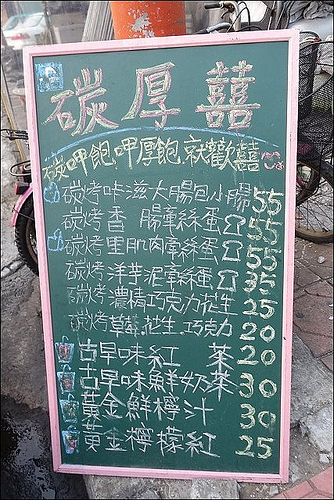 碳厚囍
碳呷飽呷厚飽就歡囍
碳烤咔滋大腸包小腸 55
碳烤香腸軍絲蛋 55
碳烤里肌肉軍絲蛋 55
碳烤洋芋泥軍絲蛋 35
碳烤濃情巧克力花生 25
碳烤草莓.花生.巧克力 20
古早味紅茶 20
古早味鮮奶茶 30
黃金鮮檸汁 30
黃金檸檬紅 25